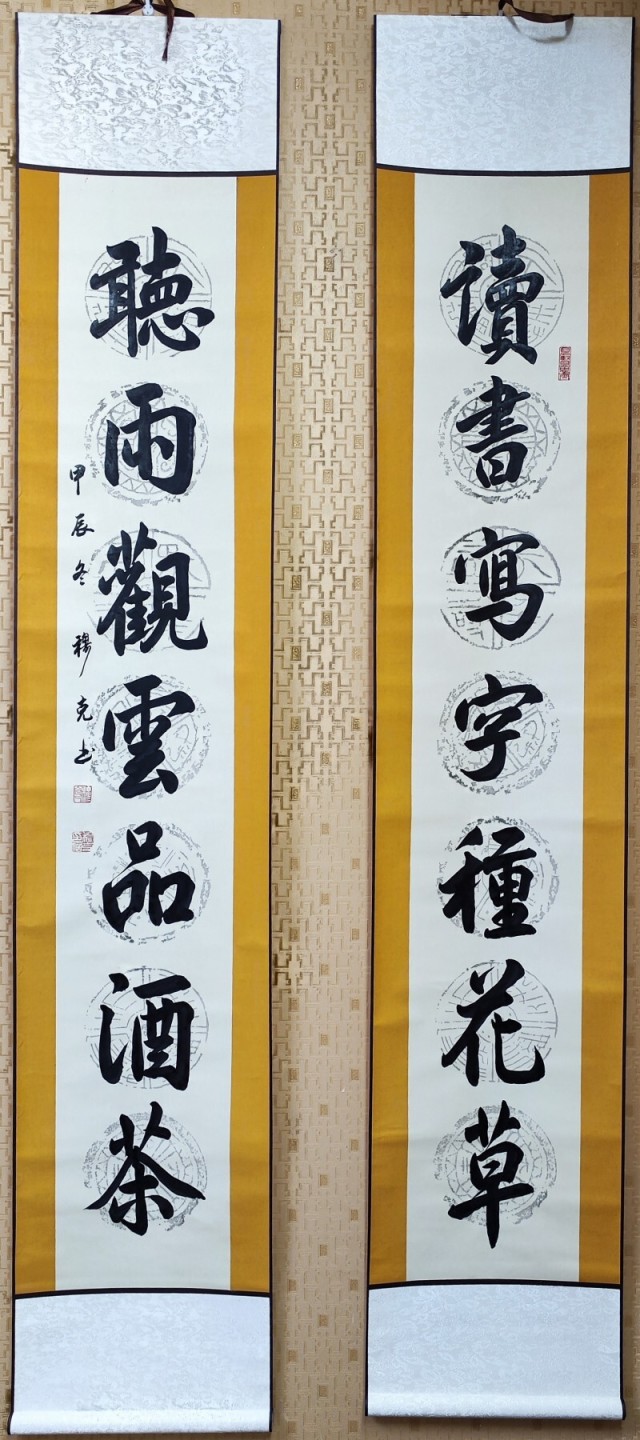 讀書寫字種花草
聽雨觀雲品酒茶
甲辰冬穆克书